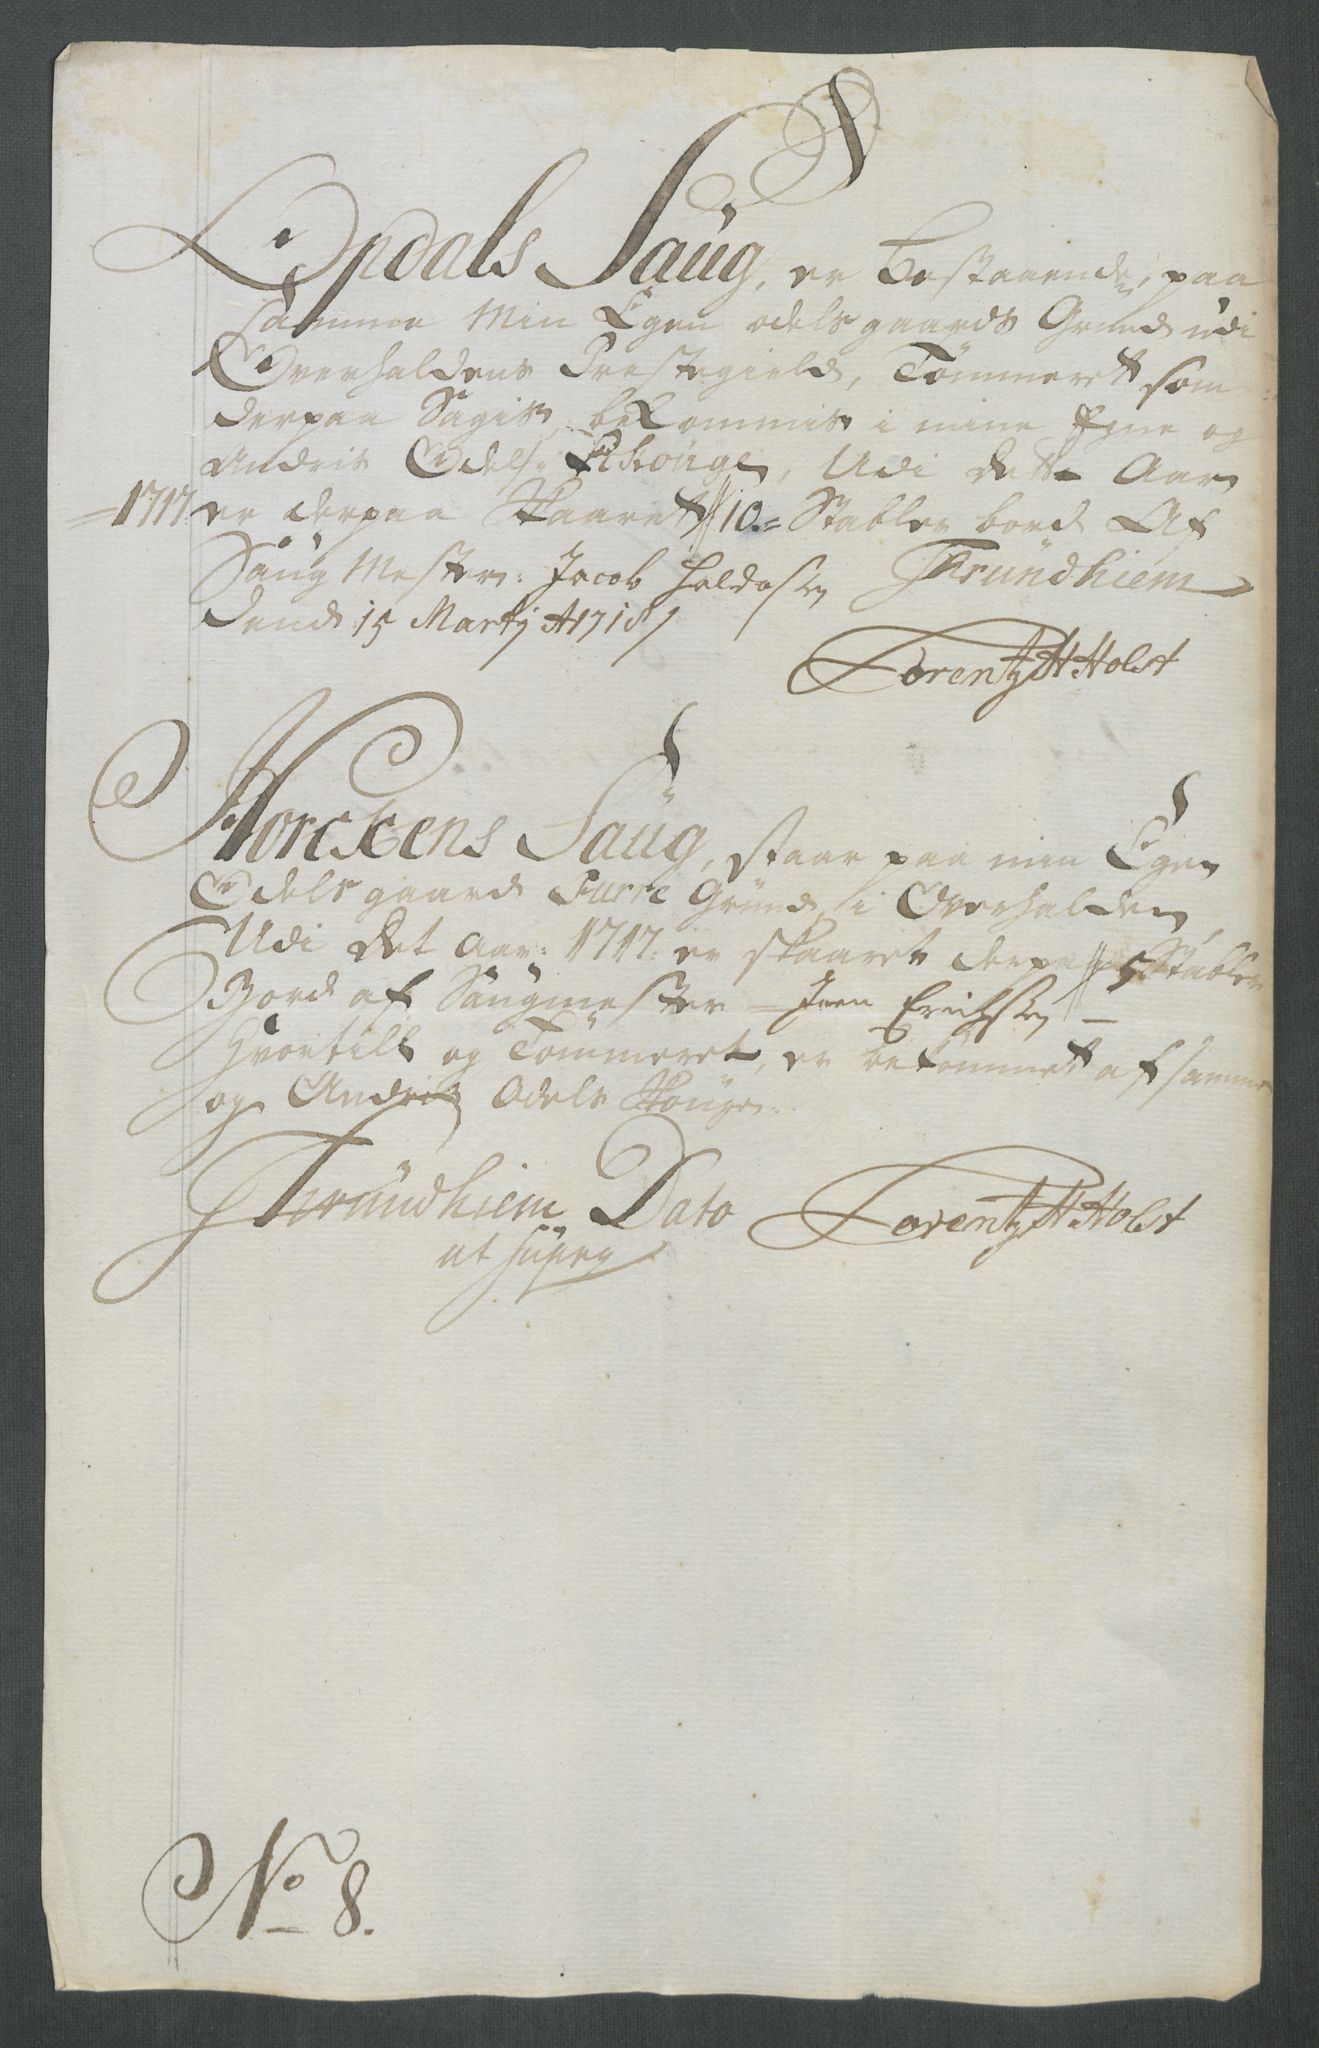 Opdals Saug, er Bestaaende, paa
samme Min Egen odels gaards Grund udi
Overhaldens Prestegield, Tømmeret som
derpaa Sagis, bekommis i mine Egne og
Andris Odels Skouge, Udi dette Aar
=1717 er derpaa Skaaret 10= Stabler bord Af
Saug Mester: Jacob Haldosen Trundhiem
dend 15 Martij A 1718
Lorentz H Holst
Horckens Saug, staar paa min Egen
Odels gaard Furre Grund, i Overhalden,
Udi det Aar: 1717: er skaaret derpaa 5 Stabler
Bord af Saugmester = Joen Erichsen
Hvortill og Tømmeret, er bekommet af samme
og Andris Odels Skouge.
Trundhiem Dato
ut supra
Lorentz H Holst
No 8.